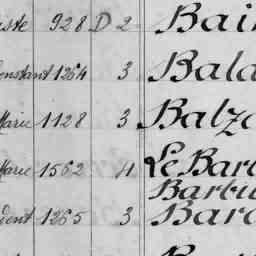 iste 928 D 2 Bai
onstant 1264 3 Bala
Marie 1128 3 Balza
Marie 1562 4 Le Bar
Barbu
dent 1265 3 Bar